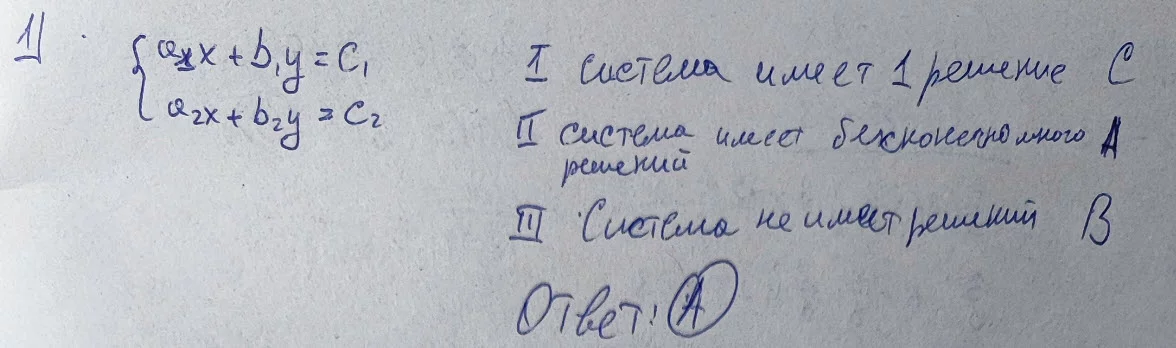 1)
{a₁x + b₁y = c₁
a₂x + b₂y = c₂
I система имеет 1 решение C
II система имеет бесконечно много A
решений
III Система не имеет решений B
Ответ: A